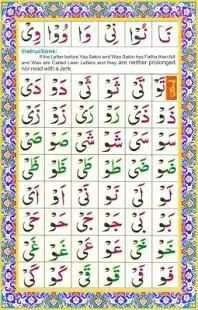 نَا تُوْا نِىْ وَا وُوْا وِىْ
Instructions:
If the Letter before Yaa Sakin and Wao Sakin has Fatha then Yaa
and Wao are Called Leen Letters and they are neither prolonged
nor read with a Jerk.
تَوْ تَىْ ثَوْ ثَىْ دَوْ دَىْ
سَوْ سَىْ شَوْ شَىْ صَوْ صَىْ
لَوْ لَىْ نَوْ نَىْ اَوْ اَىْ
بَوْ بَىْ جَوْ جَىْ حَوْ حَىْ
خَوْ خَىْ عَوْ عَىْ غَوْ غَىْ
فَوْ فَىْ قَوْ قَىْ كَوْ كَىْ